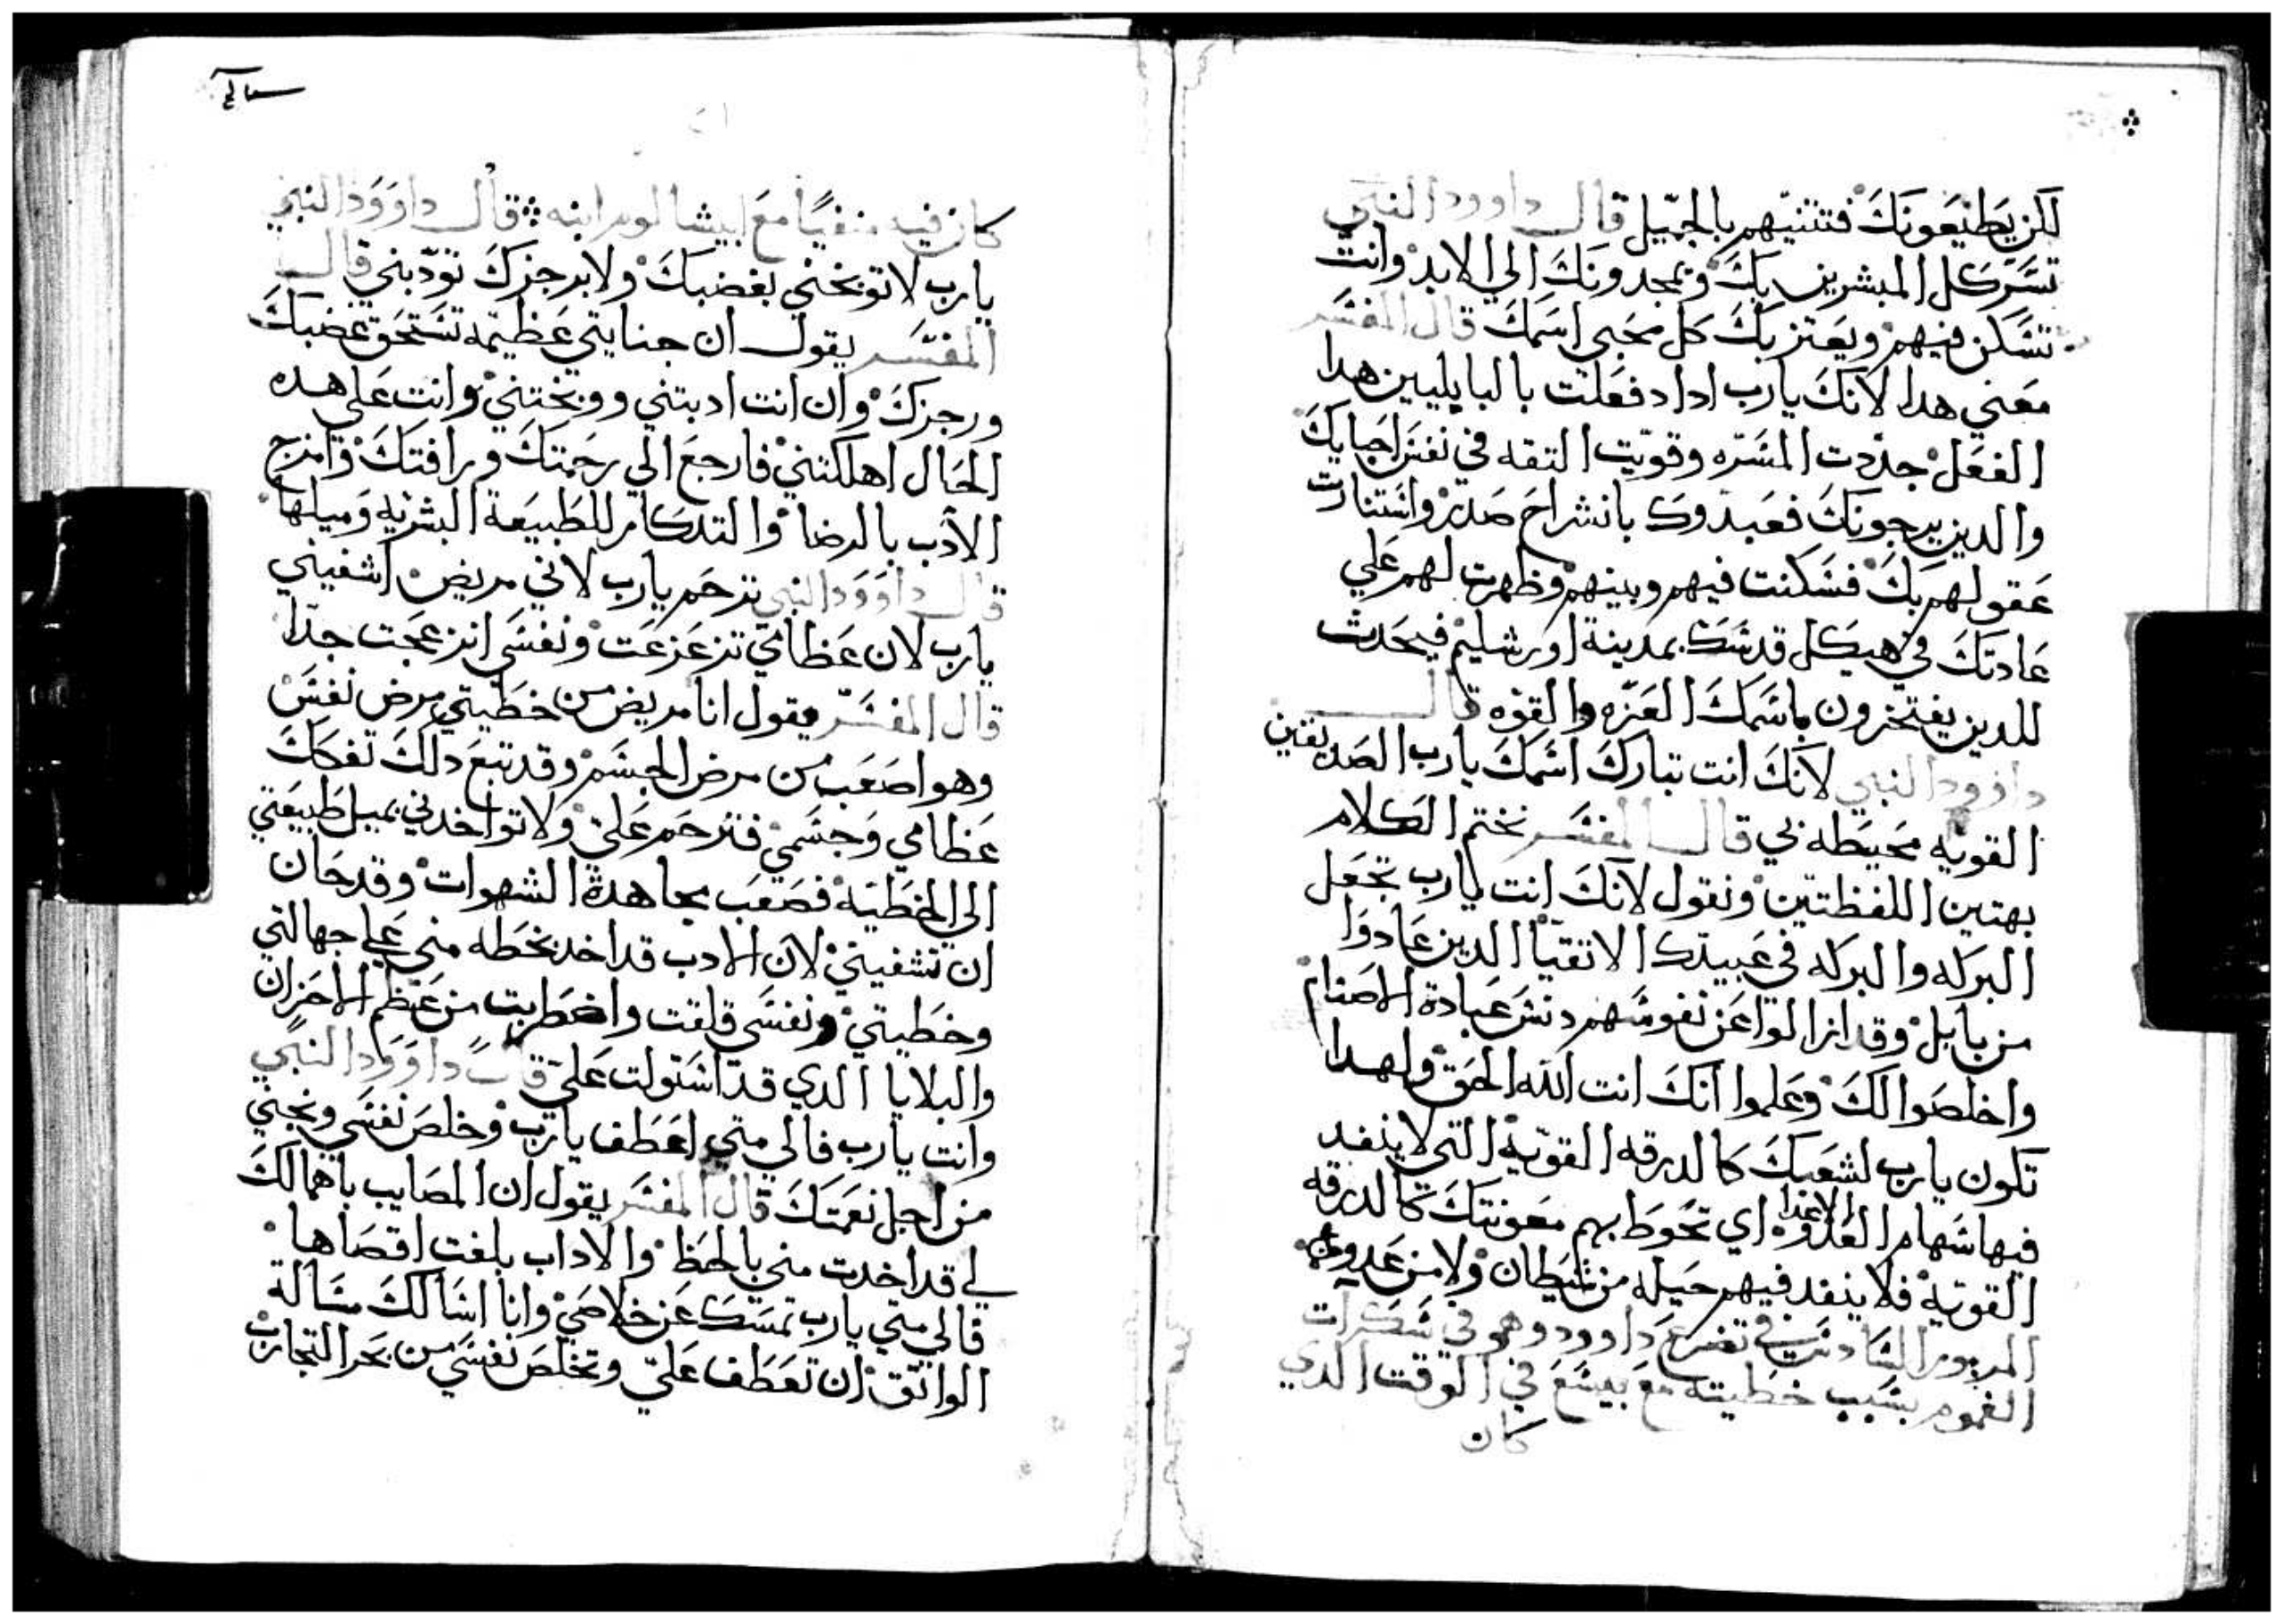 لكن يطيعونك فتثنيهم بالجميل قال داوود النبي
تسر كل المبشرين بك وتمجدونك الي الابد وانت
تسكن فيهم ويعتز بك كل محبي اسمك قال المفسر
معني هدا لانك يارب ادا دفعلت بالبابليين هدا
الفعل جددت المسره وقويت التقه في نفس احبايك
والدين يرجونك فعبدوك بانشراح صدر واستنارت
عقولهم بك فسكنت فيهم وبينهم وظهرت لهم علي
عادتك في هيكل قدسك بمدينة اورشليم فيحدث
للدين يفتخرون باسمك العزه والقوه قال
داوود النبي لانك انت تبارك اسمك يارب الصديقين
القويه محيطه بي قال المفسر نختم الكلام
بهتين اللفظتين ونقول لانك انت يارب تجعل
البركه والبركه في عبيدك الاتقيا الدين عادوا
من بابل وقد ازالوا عن نفوسهم دنس عبادة الاصنام
واخلصوا لك وعلموا انك انت الله الحق ولهدا
تكون يارب لشعبك كالدرقه القويه التي لا ينفد
فيها سهام العدوه الاعدا اي تحوط بهم معونتك كالدرقه
القويه فلا ينفد فيهم حيله من شيطان ولا من عدو
المزمور السادس في تضرع داوود وهو في سكرات
الغموم بسبب خطيته مع بيشبع في الوقت الدي
كان
كان فيه منفيا مع ابيشالوم ابنه قال داوود النبي
يارب لا توبخني بغضبك ولا برجزك تودبني قال
المفسر يقول ان جنايتي عظيمه تستحق غضبك
ورجزك وان انت ادبتني ووبختني وانت علي هده
الحال اهلكتني فارجع الي رحمتك ورافتك وامزج
الادب بالرضا والتدكار للطبيعة البشريه وميلها
قال داوود النبي ترحم يارب لاني مريض اشفيني
يارب لان عظامي تزعزعت ونفسي انزعجت جدا
قال المفسر يقول انا مريض من خطيتي مرض نفس
وهو اصعب من مرض الجسم وقد تبع دلك تفكك
عظامي وجسمي فترحم علي ولا تواخدني بميل طبيعتي
الي الخطيه فصعب مجاهدة الشهوات وقد حان
ان تشفيني لان الادب قد اخد بخطه مني علي جهالتي
وخطيتي ونفسي قلقت واضطربت من عظم الاحزان
والبلايا الدي قد استولت علي قال داوود النبي
وانت يارب فالي متي اعطف يارب وخلص نفسي ونجيني
من اجل نعمتك قال المفسر يقول ان المصايب باهمالك
لي قد اخدت مني بالحظ والاداب بلغت اقصاها
فالي متي يارب تمسك عن خلاصي وانا اسالك مسالة
الواتق ان تعطف علي وتخلص نفسي من بحر التجارب